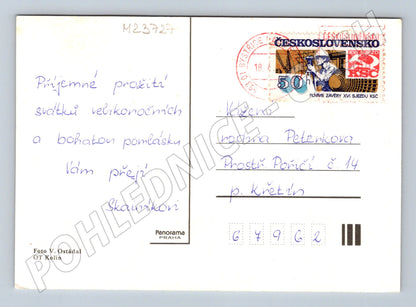 M23727
Příjemné prožití
svátků velikonočních
a bohatou pomlázku
Vám přejí
Skoumkovi
Foto V. Ostádal
OT Kolín
Panorama
PRAHA
ČESKOSLOVENSKO
50
KSČ
PLNÍME ZÁVĚRY XVI. SJEZDU KSČ
18
Vážená
rodina Peterkova
Prostř. Poříčí č. 14
p. Křetín
6 7 9 6 2
POHLEDNICE